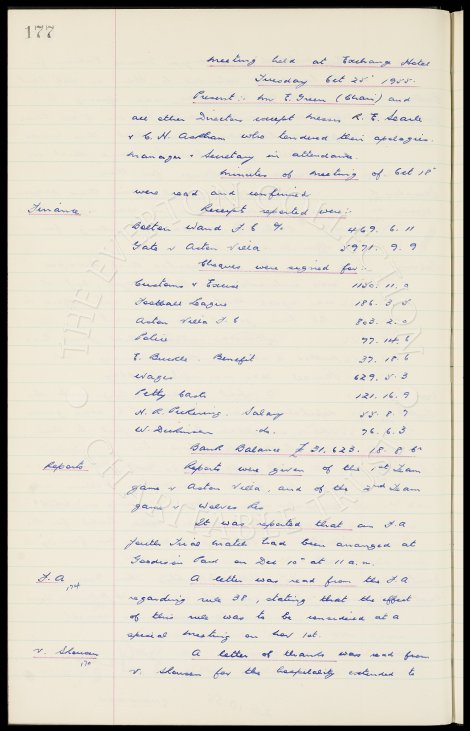 177
Meeting held at Exchange Hotel
Tuesday Oct 25th 1955.
Present:- Mr E. Green (Chair) and
all other Directors except Messrs R. E. Searle
& C. H. Askham who tendered their apologies.
Manager & Secretary in attendance
Minutes of Meeting of Oct 18th
were read and confirmed
Finance. Receipts reported were:-
Bolton Wand F. C 469. 6. 11
Gate v Aston Villa 5971. 9. 9
Cheques were signed for:-
Customs & Excise 1130. 11. 0
Football League 186. 3. 5
Aston Villa F. C 803. 2. 0
Police 77. 14. 6
E. Buckle. Benefit 37. 18. 6
Wages 629. 5. 3
Petty Cash 121. 16. 9
H. R. Pickering. Salary 55. 8. 7
W. Dickinson do. 76. 6. 3
Bank Balance £ 31,623. 18. 8
Reports Reports were given of the 1st Team
game v Aston Villa, and of the 2nd Team
game v Wolves Res
It was reported that an F.A
Youth Trial Match had been arranged at
Goodison Park on Dec 10th at 11 a.m.
F.A 174 A letter was read from the F A
regarding rule 38, stating that the effect
of this rule was to be considered at a
special meeting on Nov 1st.
A letter of thanks was read from
for the hospitality extended to
THE EVERTON COLLECTION
© CHARITABLE TRUST